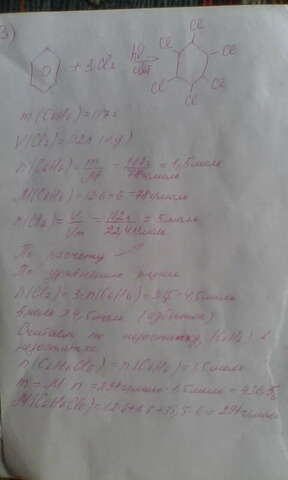 3)
+ 3Cl₂ hν свет Cl Cl Cl Cl Cl Cl
m(C₆H₆)=117г
V(Cl₂)=112л (н.у)
n(C₆H₆)=m/M=117г/78г/моль=1,5моль
M(C₆H₆)=12·6+6=78г/моль
n(Cl₂)=V/Vm=112л/22,4л/моль=5моль
По расчету
По уравнению
n(Cl₂)=3·n(C₆H₆)=3·1,5=4,5моль
5моль>4,5моль (избыток)
по недостатку, C₆H₆ в
недостатке
n(C₆H₆Cl₆)=n(C₆H₆)=1,5моль
m=M·n=291г/моль·1,5моль=436,5г
M(C₆H₆Cl₆)=12·6+1·6+35,5·6=291г/моль